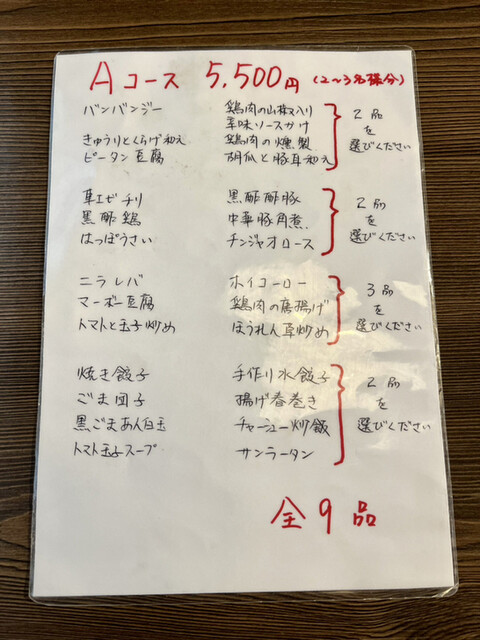 Aコース 5,500円 (2〜3名様分)
バンバンジー 鶏肉の山椒入り
薬味ソースかけ
きゅうりとくらげ和え 鶏肉の燻製
ピータン豆腐 胡瓜と豚耳和え
2品
を
選びください
草エビチリ 黒酢酢豚
黒酢鶏 中華豚角煮
はっぽうさい チンジャオロース
2品
を
選びください
ニラレバ ホイコーロー
マーボー豆腐 鶏肉の唐揚げ
トマトと玉子炒め ほうれん草炒め
3品
を
選びください
焼き餃子 手作り水餃子
ごま団子 揚げ春巻き
黒ごまあん白玉 チャーシュー炒飯
トマト玉子スープ サンラータン
2品
を
選びください
全9品